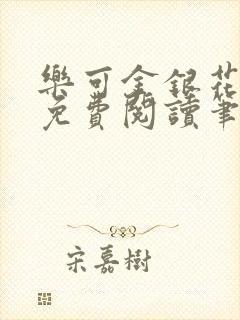 樂可金銀花
免費閱讀筆
宋嘉樹